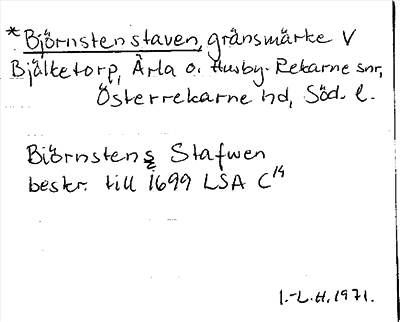 *Björnstenstaven, gränsmärke V
Bjälketorp, Ärla o. Husby-Rekarne snr,
Österrekarne hd, Söd. l.
Biörnstens Stafwen
beskr. till 1699 LSA C¹⁴
I.-L.H. 1971.